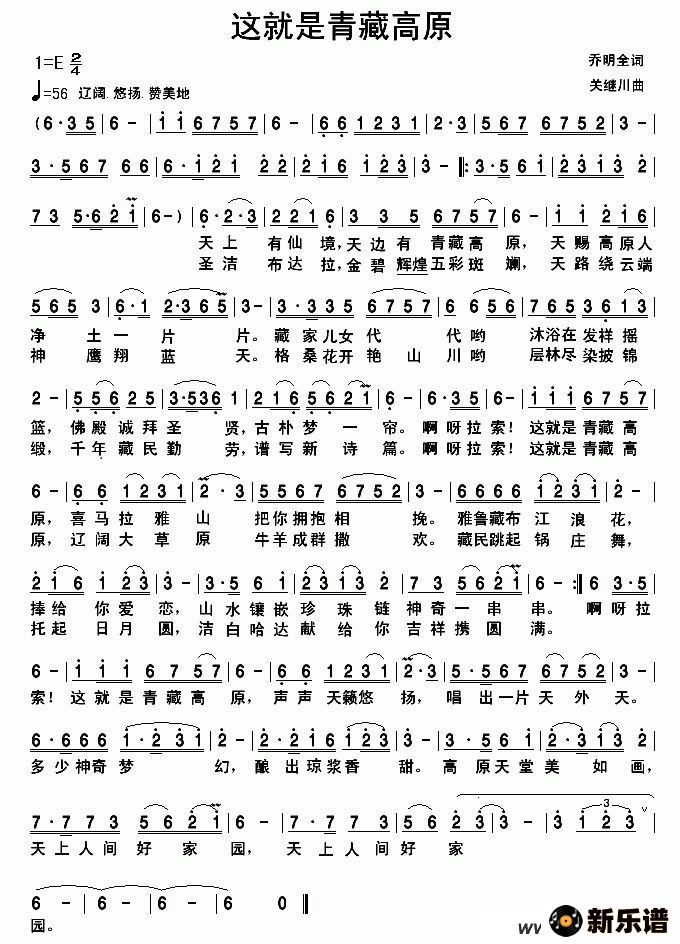 这就是青藏高原
1=E 2/4
乔明全词
♩=56 辽阔. 悠扬. 赞美地
关继川曲
( 6·3 5 | 6 - | i i 6 7 5 7 | 6 - | 6 6 1 2 3 1 | 2 - | 5 5 6 7 | 6 7 5 2 | 3 - |
3·5 6 7 6 6 | 6·i 2 i | 2 2· i 2 3 | 3 - |: 3·5 6 i | 2 3 i 3 |
7 3 5·6 2 i | 6 - ) | 6·2·3 | 2 2 1 6 | 3 3 5 | 6 7 5 7 | 6 - | i i 2 i 6 |
天上 有仙境,天边有 青藏高 原, 天赐高原人
圣洁 布达拉,金碧辉煌五彩斑 斓, 天路绕云端
5 6 5 3 | 6·1 2·3 6 5 | 3 - | 3·2 3 5 | 6 7 5 7 | 6 5 6 | 7 6 5 3 6 1 3 |
净 土一 片 片。藏 家儿女代 代哟 沐浴在发祥摇
神 鹰翔 蓝 天。格 桑花开艳 山川哟 层林尽染披锦
2 - | 5 5 6 2 5 | 3·5 3 6 | 2 1 6 5 6 2 i | 6 - | 6 3·5 | 6 - | i i i 6 7 5 7 |
篮, 佛殿诚拜圣 贤,古朴梦一 帘。啊呀拉索!这就是青藏高
缎, 千年藏民勤 劳,谱写新诗 篇。啊呀拉索!这就是青藏高
6 - | 6 6 1 2 3 1 | 2·3 | 5 5 6 7 | 6 7 5 2 | 3 - | 6 6 6 6 | i 2 3 i |
原, 喜马拉雅山 把你拥抱相 挽。雅鲁藏布江浪花,
原, 辽阔大草原 牛羊成群撒 欢。藏民跳起锅庄舞,
2 i 6 | 1 2 3· | 5·5 3 5 | 2 1 2 3 | 7 3 5 6 2 i | 6 - :| 6 3·5 |
捧给 你爱恋,山水镶嵌珍珠链神奇一串 串。啊呀拉
托起 日月圆,洁白哈达献给你吉祥携圆 满。
6 - | i i i 6 7 5 7 | 6 - | 6 6 1 2 3 1 | 2·3 | 5 5 6 7 6 7 5 2 | 3 - |
索! 这就是青藏高 原, 声声天籁悠 扬, 唱出一片天外 天。
6·6 6 6 | 1·2 3 1 | 2 - | 2·2 1 6 1 2 3 | 3 - | 5·5 3 5 | 2 3 i 2 |
多少神奇梦 幻, 酿出琼浆香 甜。高原天堂美如画,
7·7 7 3 | 5 6 2 i | 6 - | 7·7 7 3 | 5 6 2 3 | 3 - i 2 3 |
天上人间好家 园, 天上人间 好家
6 - | 6 - | 6 - | 6 0 ‖
园。
新乐谱